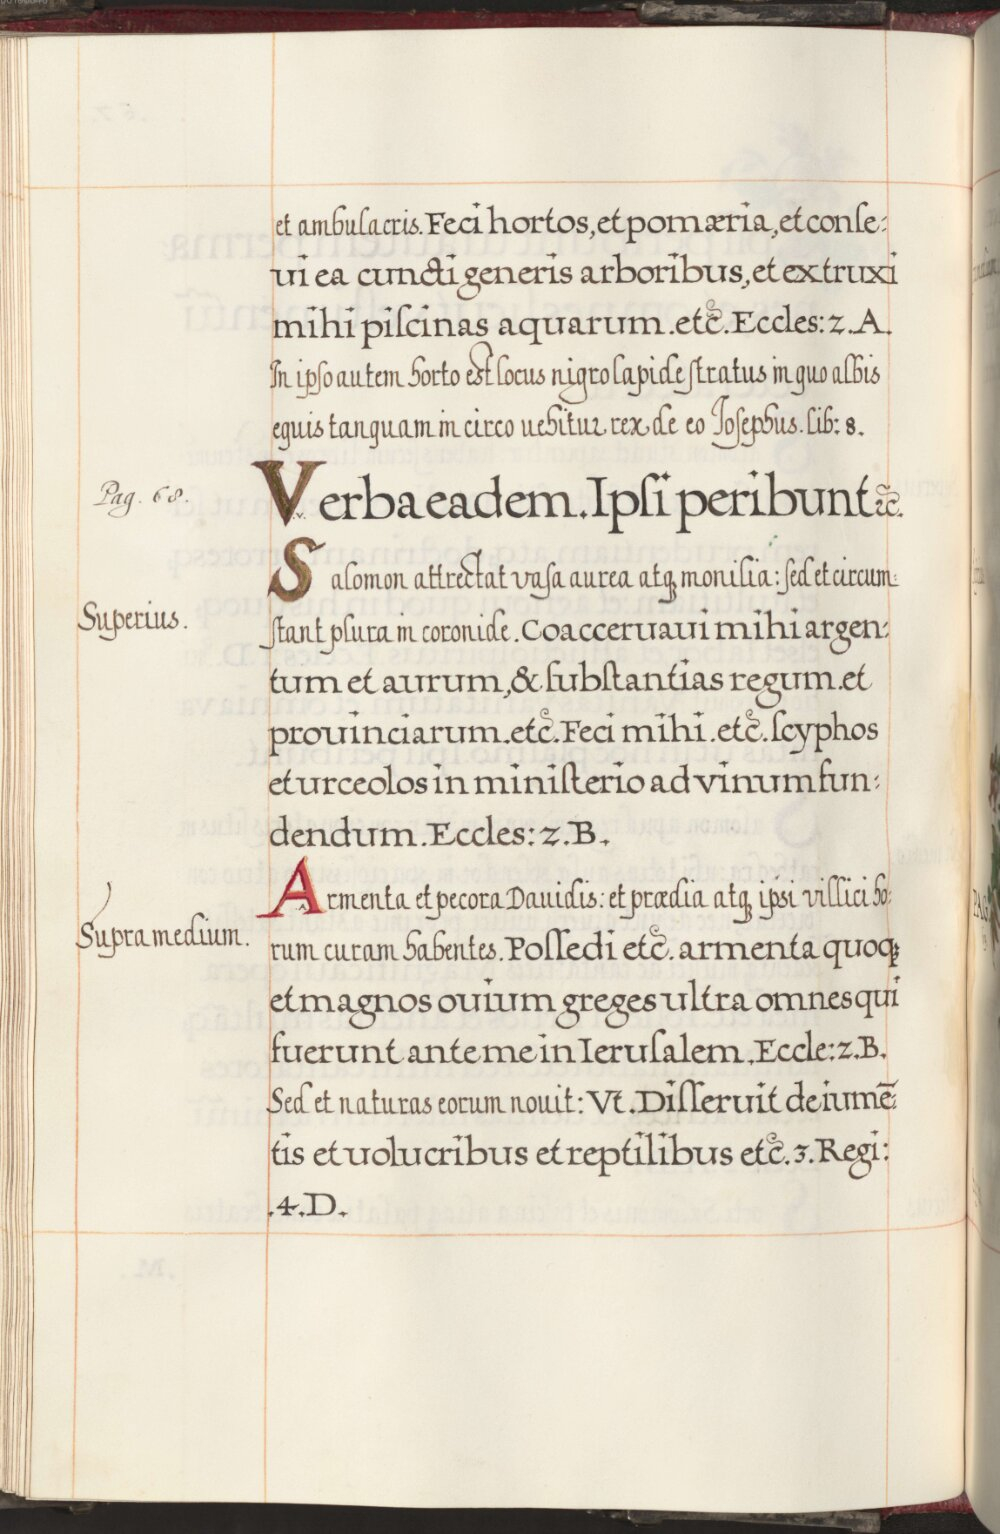 et ambulacris. Feci hortos, et pomæria, et conſe:
ui ea cuncti generis arboribus, et extruxi
mihi piſcinas aquarum. etc̃. Eccles: 2. A.
In ipſo autem horto est locus nigro lapide ſtratus in quo albis
equis tanquam in circo uehitur rex de eo Ioſephus. lib: 8.
Pag. 68.
Verba eadem. Ipſi peribunt ꝛc̃.
Salomon attrectat vaſa aurea atq; monilia: ſed et circum:
Superius.
ſtant plura in coronide. Coacceruaui mihi argen:
tum et aurum, & ſubſtantias regum. et
prouinciarum. etc̃. Feci mihi. etc̃. ſcyphos
et urceolos in miniſterio ad vinum fun:
dendum. Eccles: 2. B.
Armenta et pecora Dauidis: et prædia atq; ipsi villici ho:
Supra medium.
rum curam habentes. Poſſedi etc̃. armenta quoq;
et magnos ouium greges ultra omnes qui
fuerunt ante me in Ieruſalem. Eccle: 2. B.
Sed et naturas eorum nouit: Vt. Diſſeruit de iumẽ:
tis et uolucribus et reptilibus etc̃. 3. Regi:
.4. D.